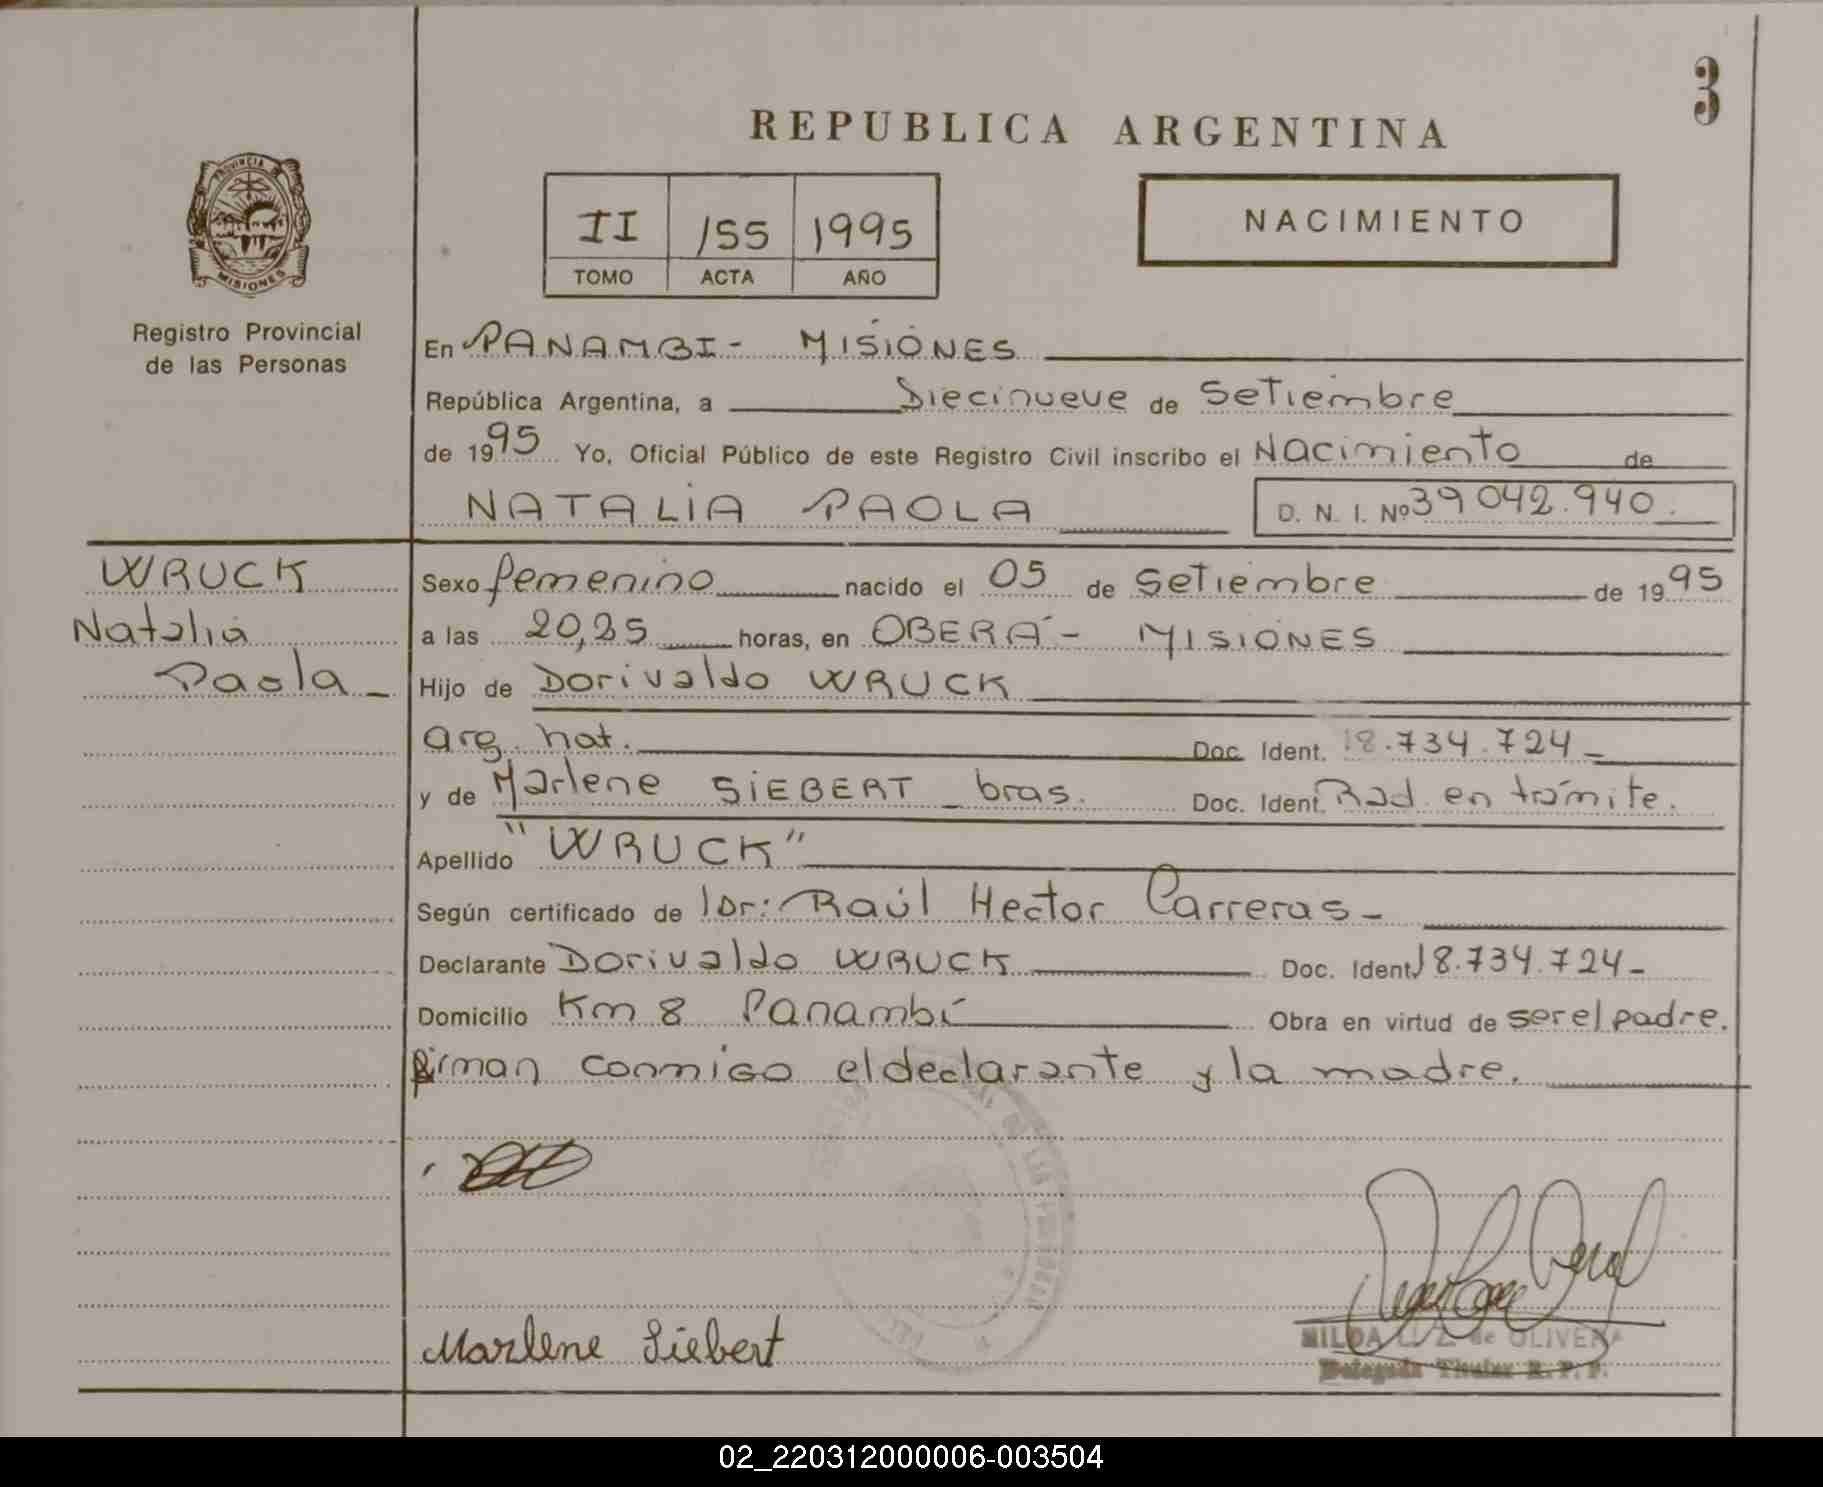 3
REPUBLICA ARGENTINA
PROVINCIA DE
MISIONES
II 155 1995
TOMO ACTA AÑO
NACIMIENTO
Registro Provincial
de las Personas
En PANAMBI - MISIONES
República Argentina, a Diecinueve de Setiembre
de 1995 Yo, Oficial Público de este Registro Civil inscribo el Nacimiento de
NATALIA PAOLA D. N. I. Nº 39 042.940.
WRUCK
Natalia
Paola
Sexo femenino nacido el 05 de Setiembre de 1995
a las 20,25 horas, en OBERÁ - MISIONES
Hijo de Dorivaldo WRUCK
arg. nat. Doc. Ident. 18.734.724
y de Marlene SIEBERT - bras. Doc. Ident. Rad. en trámite.
Apellido "WRUCK"
Según certificado de Dr: Raúl Hector Carreras -
Declarante Dorivaldo WRUCK Doc. Ident. 18.734.724 -
Domicilio Km 8 Panambí Obra en virtud de ser el padre.
firman conmigo el declarante y la madre.
Marlene Siebert
de OLIVERA
Delegada Titular R. P. P.
02_220312000006-003504